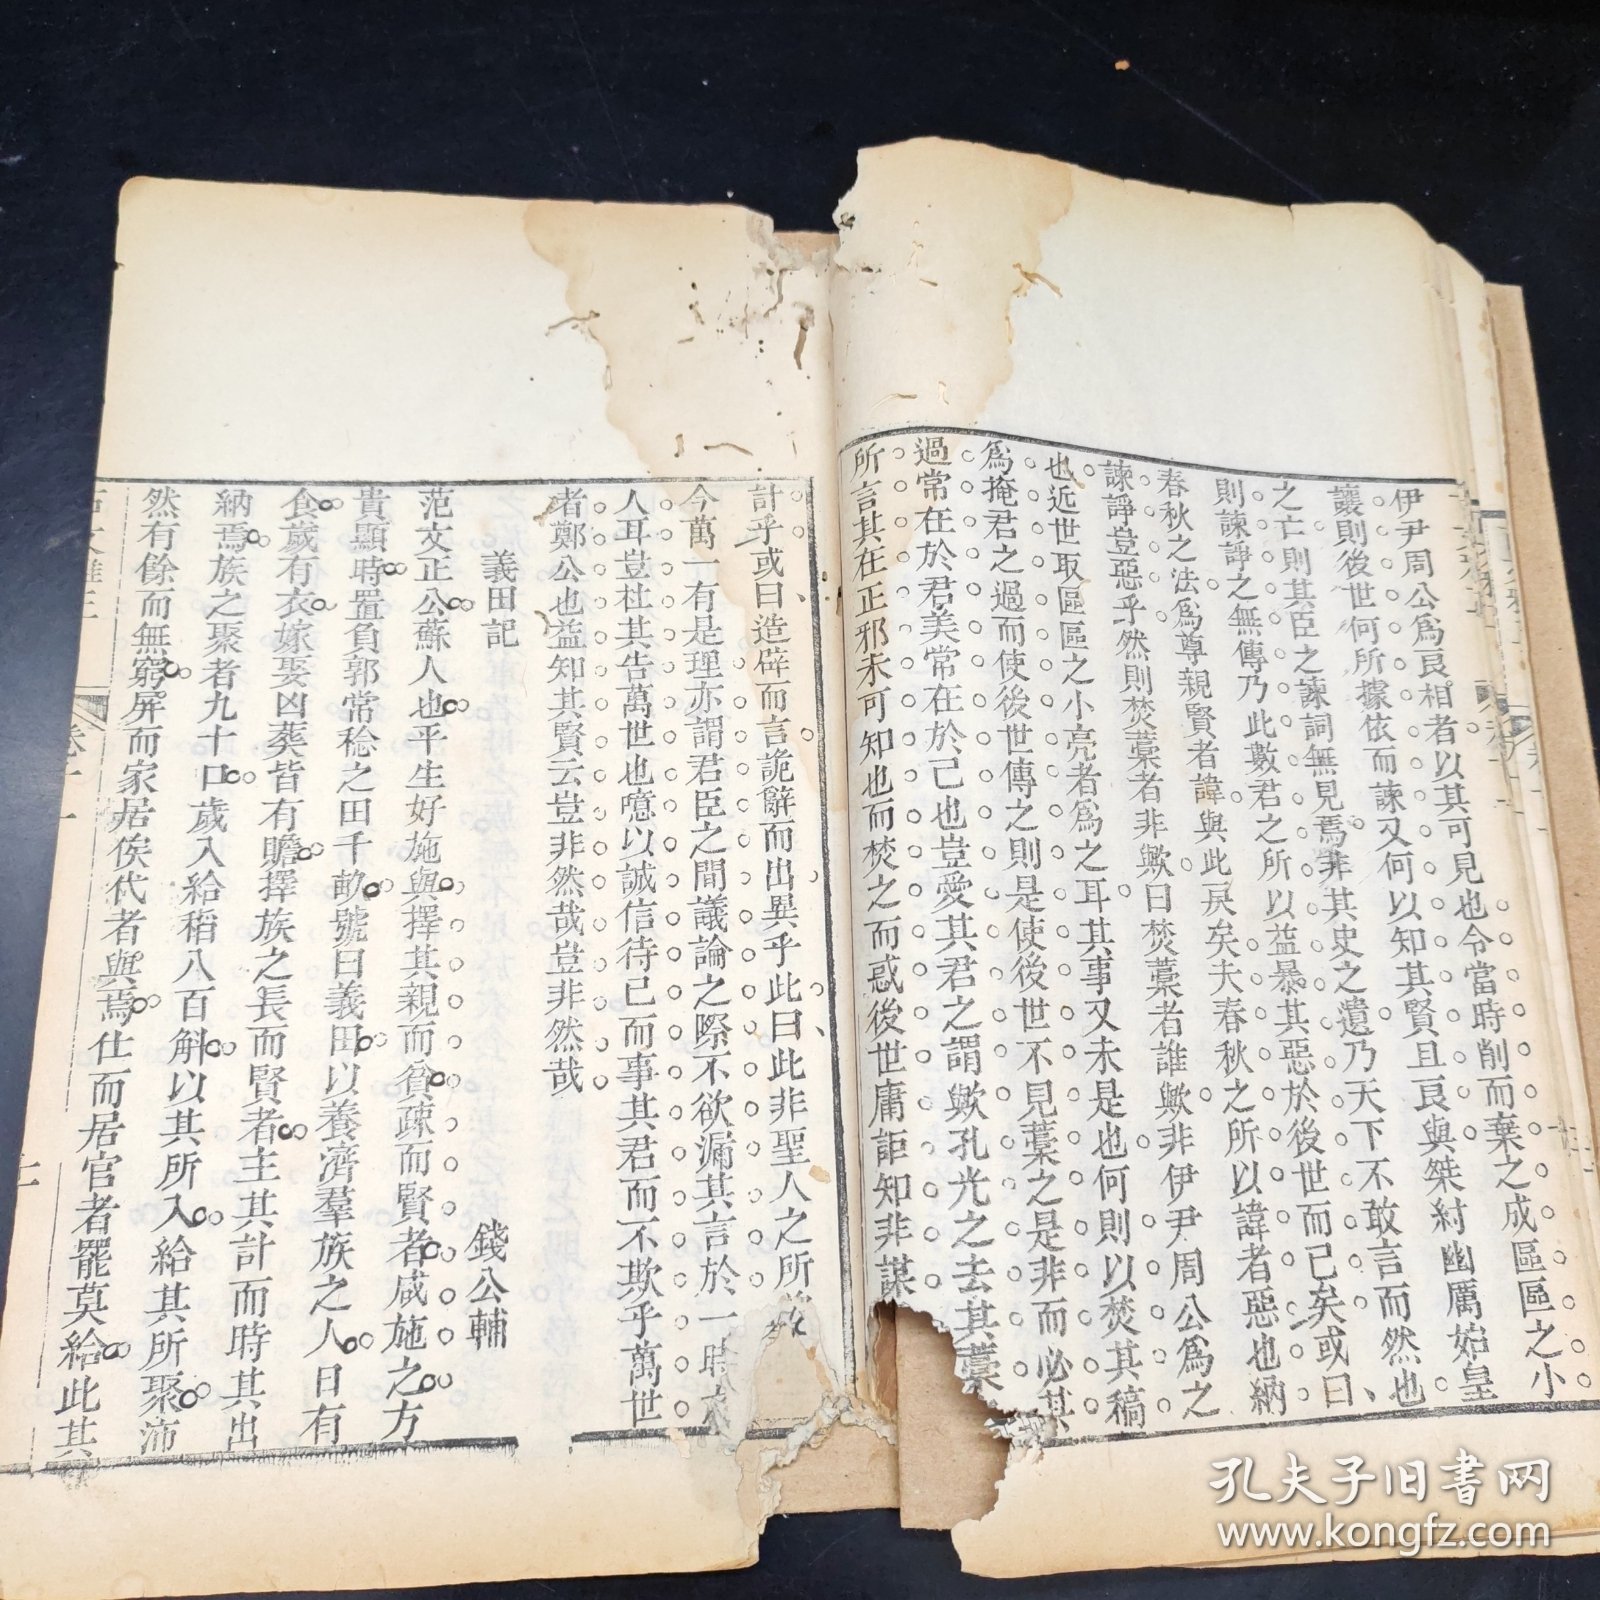 伊尹周公爲良相者以其可見也令當時削而棄之成區區之小
讓則後世何所據依而諫又何以知其賢且良與桀紂幽厲始皇
之亡則其臣之諫詞無見焉非其史之遺乃天下不敢言而然也
則諫諍之無傳乃此數君之所以益暴其惡於後世而已矣或曰
春秋之法爲尊親賢者諱與此戾矣夫春秋之所以諱者惡也納
諫諍豈惡乎然則焚藁者非歟曰焚藁者誰歟非伊尹周公爲之
也近世取區區之小亮者爲之耳其事又未是也何則以焚其稿
爲掩君之過而使後世傳之則是使後世不見藁之是非而必其
過常在於君美常在於己也豈愛其君之謂歟孔光之去其藁
所言其在正邪未可知也而焚之而惑後世庸詎知非謀
計乎或曰造辟而言詭辭而出異乎此曰此非聖人之所
今萬一有是理亦謂君臣之間議論之際不欲漏其言於一時
人耳豈杜其告萬世也噫以誠信待己而事其君而不欺乎萬世
者鄭公也益知其賢云豈非然哉豈非然哉
義田記
錢公輔
范文正公蘇人也平生好施與擇其親而貧疎而賢者咸施之方
貴顯時置負郭常稔之田千畝號曰義田以養濟羣族之人日有
食歲有衣嫁娶凶葬皆有贍擇族之長而賢者主其計而時其出
納焉族之聚者九十口歲入給稻八百斛以其所入給其所聚沛
然有餘而無窮屏而家居俟代者與焉仕而居官者罷莫給此其
卷十一
孔夫子旧书网
www.kongfz.com